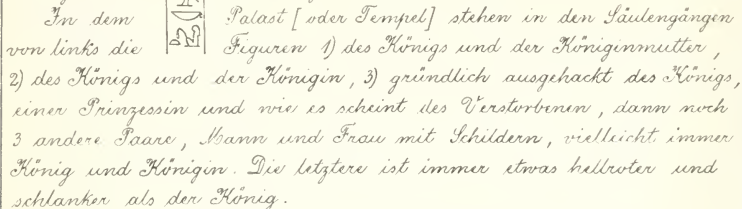 In dem Palast [oder Tempel] stehen in den Säulengängen
von links die Figuren 1) des Königs und der Königinmutter,
2) des Königs und der Königin, 3) gründlich ausgehackt des Königs,
einer Prinzessin und wie es scheint des Verstorbenen, dann noch
3 andere Paare, Mann und Frau mit Schildern, vielleicht immer
König und Königin. Die letztere ist immer etwas hellroter und
schlanker als der König.